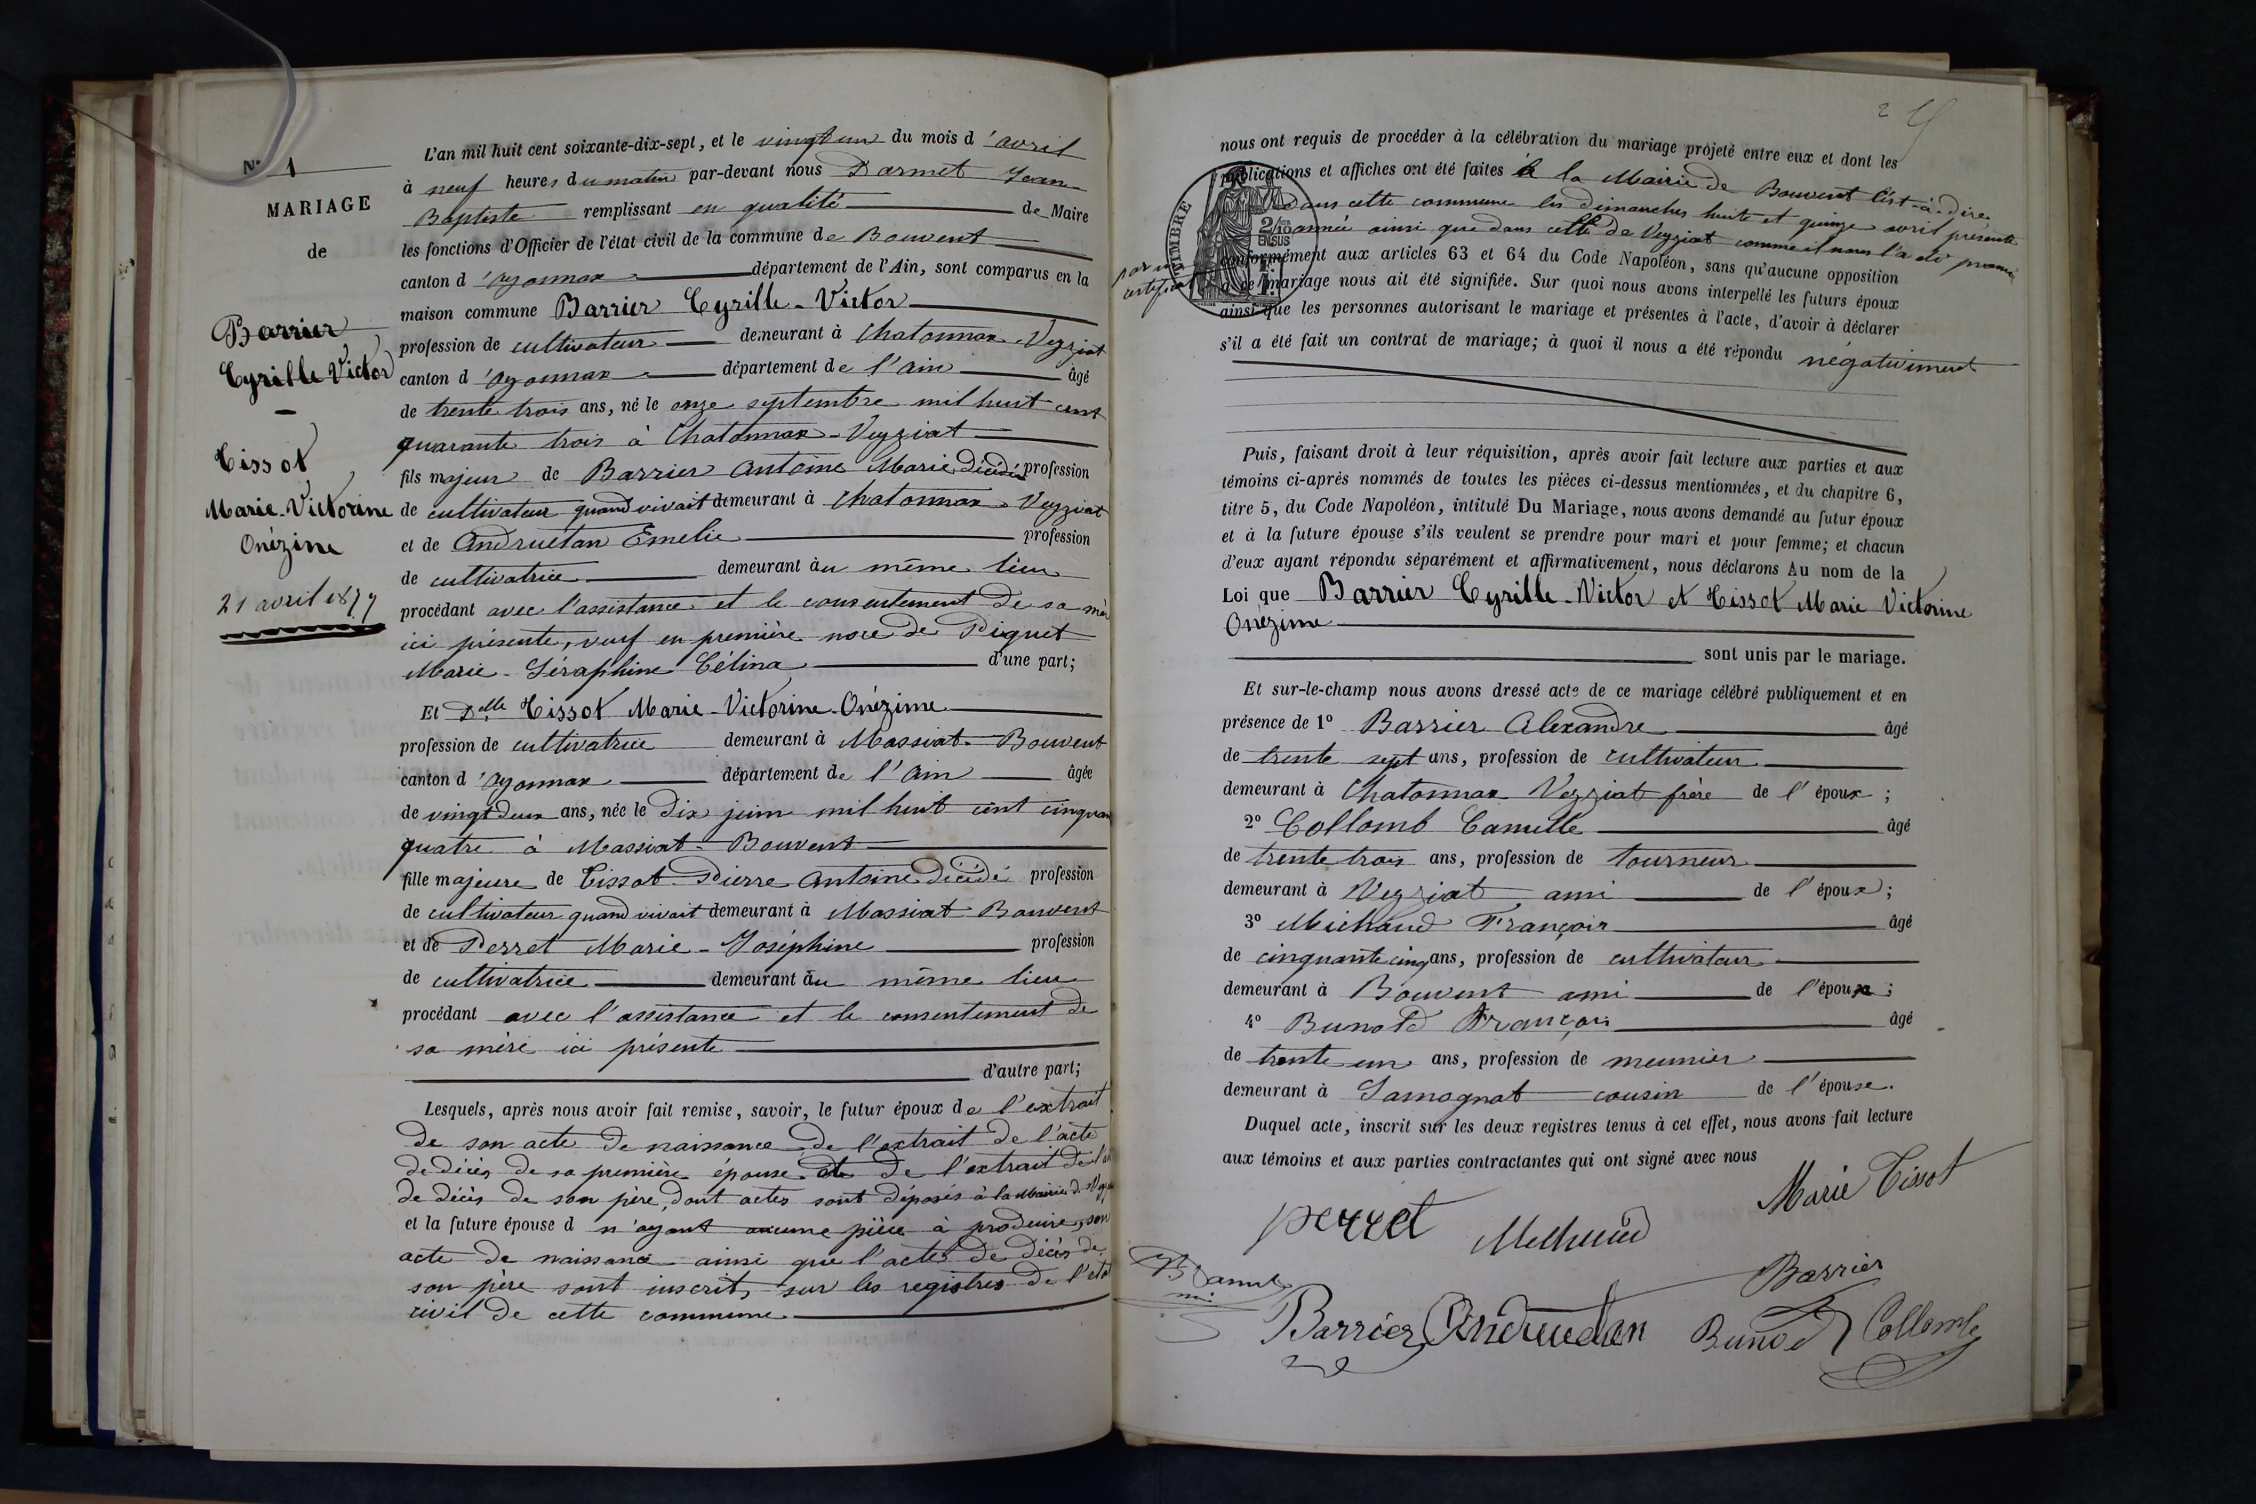 N° 1
MARIAGE
de
Barrier
Cyrille Victor
Tissot
Marie-Victorine
Onézime
21 avril 1877
L'an mil huit cent soixante-dix-sept, et le vingt un du mois d'avril
à neuf heures du matin par-devant nous Darmet Jean
Baptiste remplissant en qualité de Maire
les fonctions d'Officier de l'état civil de la commune de Bouvent
canton d'oyonnax département de l'Ain, sont comparus en la
maison commune Barrier Cyrille-Victor
profession de cultivateur demeurant à Chatonnax-Veyziat
canton d'oyonnax département de l'ain âgé
de trente trois ans, né le onze septembre mil huit cent
quarante trois à Chatonnax-Veyziat
fils majeur de Barrier Antoine Marie décédé profession
de cultivateur quand vivait demeurant à Chatonnax-Veyziat
et de Andruétan Emelie profession
de cultivatrice demeurant au même lieu
procédant avec l'assistance et le consentement de sa mère
ici présente, veuf en première noce de Piquet
Marie-Séraphine Célina d'une part;
Et Delle Tissot Marie-Victorine-Onézime
profession de cultivatrice demeurant à Massiat-Bouvent
canton d'oyonnax département de l'ain âgée
de vingt deux ans, née le dix juin mil huit cent cinquan
quatre à Massiat-Bouvent
fille majeure de Tissot Pierre Antoine décédé profession
de cultivateur quand vivait demeurant à Massiat-Bouvent
et de Perret Marie-Joséphine profession
de cultivatrice demeurant au même lieu
procédant avec l'assistance et le consentement de
sa mère ici présente
d'autre part;
Lesquels, après nous avoir fait remise, savoir, le futur époux de l'extrait
de son acte de naissance de l'extrait de l'acte
de décès de sa première épouse et de l'extrait de l'
de décès de son père, dont actes sont déposés à la Mairie de
et la future épouse d n'ayant aucune pièce à produire, son
acte de naissance ainsi que l'acte de décès de
son père sont inscrits sur les registres de l'état
civil de cette commune
2
nous ont requis de procéder à la célébration du mariage projeté entre eux et dont les
publications et affiches ont été faites à la Mairie de Bouvent c'est-à-dire
dans cette commune les dimanches huite et quinze avril présente
année ainsi que dans celle de Veyziat comme il nous l'a été prouvé
par un
certificat
TIMBRE
2/10 EN SUS
conformément aux articles 63 et 64 du Code Napoléon, sans qu'aucune opposition
à ce mariage nous ait été signifiée. Sur quoi nous avons interpellé les futurs époux
ainsi que les personnes autorisant le mariage et présentes à l'acte, d'avoir à déclarer
s'il a été fait un contrat de mariage; à quoi il nous a été répondu négativement
Puis, faisant droit à leur réquisition, après avoir fait lecture aux parties et aux
témoins ci-après nommés de toutes les pièces ci-dessus mentionnées, et du chapitre 6,
titre 5, du Code Napoléon, intitulé Du Mariage, nous avons demandé au futur époux
et à la future épouse s'ils veulent se prendre pour mari et pour femme; et chacun
d'eux ayant répondu séparément et affirmativement, nous déclarons Au nom de la
Loi que Barrier Cyrille-Victor et Tissot Marie Victorine
Onézime
sont unis par le mariage.
Et sur-le-champ nous avons dressé acte de ce mariage célébré publiquement et en
présence de 1° Barrier Alexandre âgé
de trente sept ans, profession de cultivateur
demeurant à Chatonnax Veyziat frère de l'époux;
2° Collomb Camille âgé
de trente trois ans, profession de tourneur
demeurant à Veyziat ami de l'époux;
3° Michaud François âgé
de cinquante cinq ans, profession de cultivateur
demeurant à Bouvent ami de l'époux;
4° Bunod François âgé
de trente un ans, profession de meunier
demeurant à Samognat cousin de l'épouse.
Duquel acte, inscrit sur les deux registres tenus à cet effet, nous avons fait lecture
aux témoins et aux parties contractantes qui ont signé avec nous
Marie Tissot
perret
Barrier
Barrier Andruetan Bunod Collomb